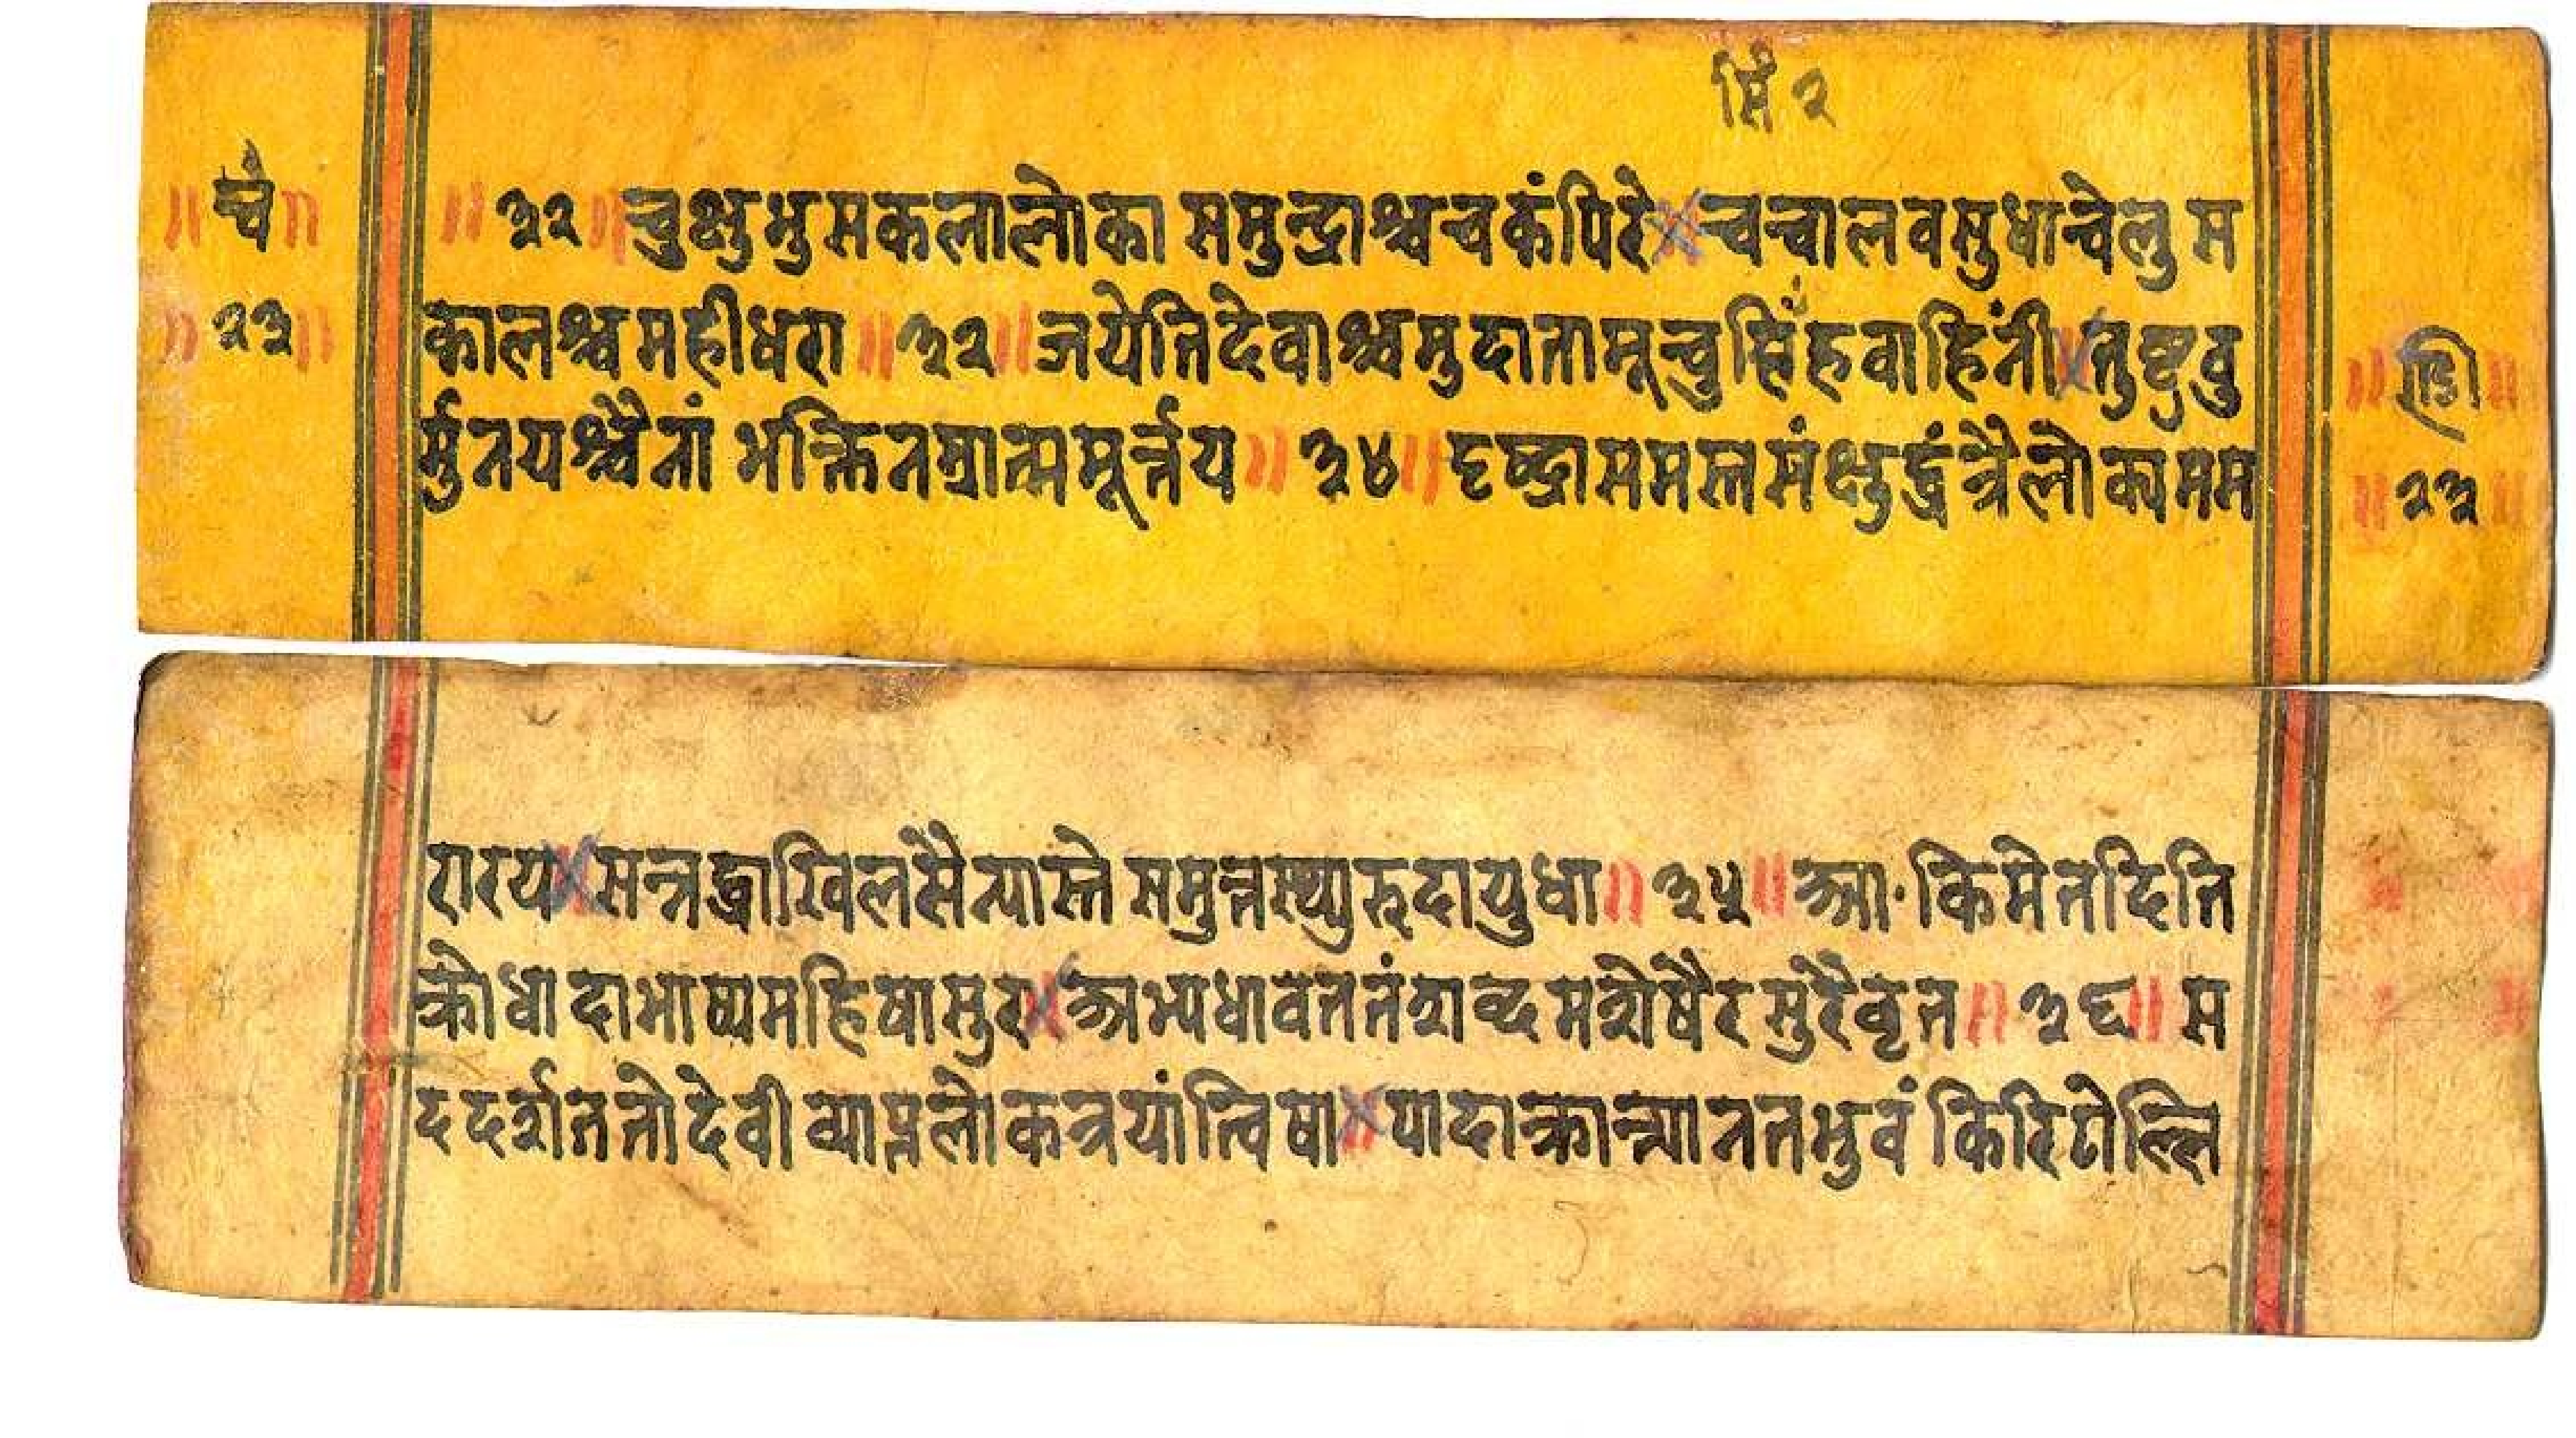 मिं २
॥ चै ॥ ॥ ३२ ॥ चुक्षुभुसकलालोका समुन्द्राश्चचकंपिरे चचालवसुधाचेलु स
॥ २३ ॥ कालश्चमहीधरा ॥ ३२ ॥ जयेतिदेवाश्चमुदातामूचुसिंहवाहिनीं तुष्टुवु
र्मुनयश्चैनां भक्तिनम्रात्ममूर्त्तय ॥ ३४ ॥ दृष्ट्वासमस्तसंक्षुद्धंत्रैलोक्यमम
॥ २३ ॥
रारय सन्नद्धाखिलसैन्यास्ते समुत्तस्थ्युरुदायुधा ॥ ३५ ॥ आ॰किमेतदिति
क्रोधादाभाष्यमहिषासुर अभ्यधावततंशब्दमशेषैरसुरैवृत ॥ ३६ ॥ स
ददर्शततोदेवी व्याप्तलोकत्रयांत्विषा पादाक्रान्त्यानतभुवं किरिटोल्लि